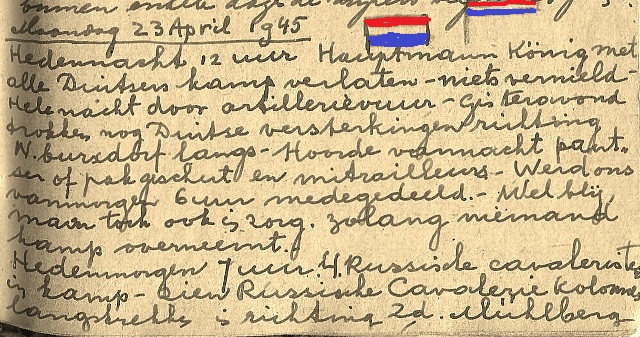 binnen enkele dage de
Maandag 23 April 1945
Hedennacht 12 uur Hauptmann König met
alle Duitsers kamp verlaten - niets vernield -
Hele nacht door artillerievuur - Gisteravond
trokken nog Duitse versterkingen richting
N. burxdorf langs - Hoorde vannacht pant-
ser of pakgeschut en mitrailleurs - Werd ons
vanmorgen 6 uur medegedeeld. - Wel blij,
maar toch ook is zorg. zolang niemand
kamp overneemt.
Hedenmorgen 7 uur 4 Russische cavaleristen
in kamp - zien Russische Cavalerie kolonne
langstrekken is richting Z.d. Mühlberg